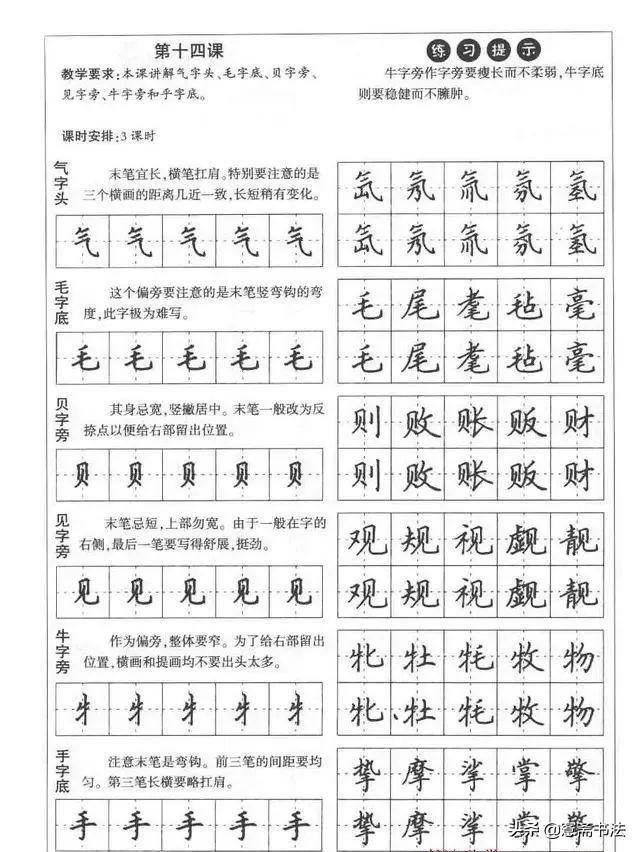 第十四课
教学要求:本课讲解气字头、毛字底、贝字旁、
见字旁、牛字旁和乎字底。
课时安排:3课时
练习提示
牛字旁作字旁要瘦长而不柔弱,牛字底
则要稳健而不臃肿。
气字头
末笔宜长,横笔扛肩。特别要注意的是
三个横画的距离几近一致,长短稍有变化。
气气气气气
氙氖氚氛氢
氙氖氚氛氢
毛字底
这个偏旁要注意的是末笔竖弯钩的弯
度,此字极为难写。
毛毛毛毛毛
毛尾耄毡毫
毛尾耄毡毫
贝字旁
其身忌宽,竖撇居中。末笔一般改为反
捺点以便给右部留出位置。
贝贝贝贝贝
则败账贩财
则败账贩财
见字旁
末笔忌短,上部勿宽。由于一般在字的
右侧,最后一笔要写得舒展,挺劲。
见见见见见
观规视觑靓
观规视觑靓
牛字旁
作为偏旁,整体要窄。为了给右部留出
位置,横画和提画均不要出头太多。
牜牜牜牜牜
牝牡牦牧物
牝牡牦牧物
手字底
注意末笔是弯钩。前三笔的间距要均
匀。第三笔长横要略扛肩。
手手手手手
挚摩挲掌擎
挚摩挲掌擎
头条@慧斋书法